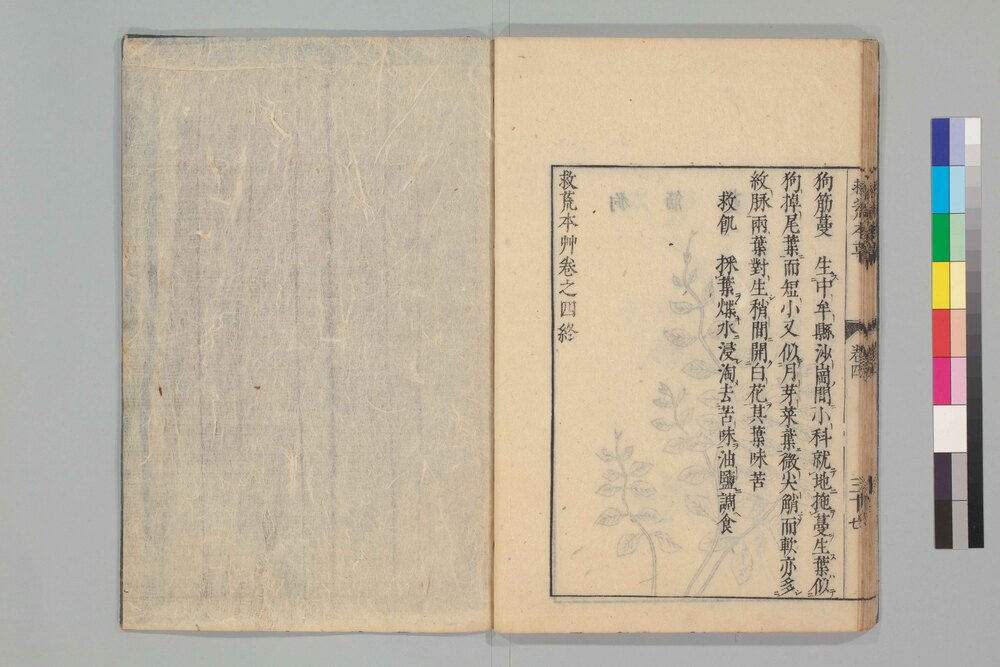 狗筋蔓 生中牟縣沙崗間小科就地拖蔓生葉似
狗掉尾葉而短小又似月芽菜葉微尖艄而軟亦多
紋脉兩葉對生稍間開白花其葉味苦
救飢 採葉煠水浸淘去苦味油鹽調食
救荒本艸卷之四終